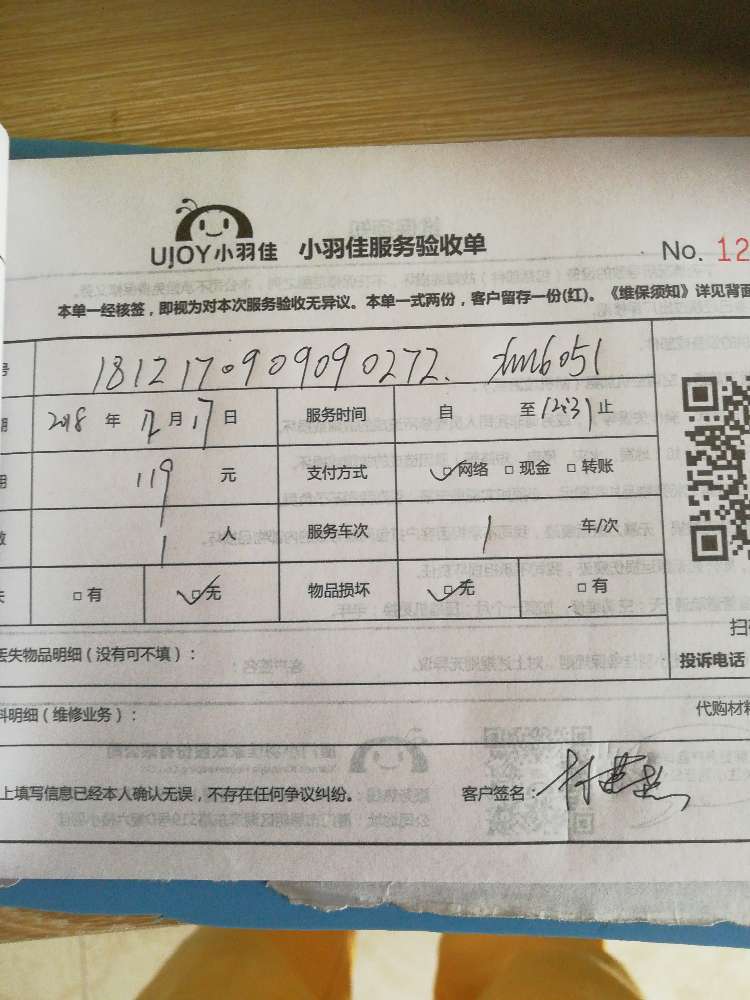 UJOY小羽佳 小羽佳服务验收单 No. 12
本单一经核签，即视为对本次服务验收无异议。本单一式两份，客户留存一份(红)。《维保须知》详见背面
号 181217090909090272. xm6051
期 2018 年 12 月 17 日 服务时间 自 至 12:31 止
用 119 元 支付方式 网络 现金 转账
数 1 人 服务车次 1 车/次
失 有 无 物品损坏 无 有
丢失物品明细（没有可不填）：
扫
投诉电话
料明细（维修业务）： 代购材料
上填写信息已经本人确认无误，不存在任何争议纠纷。 客户签名：